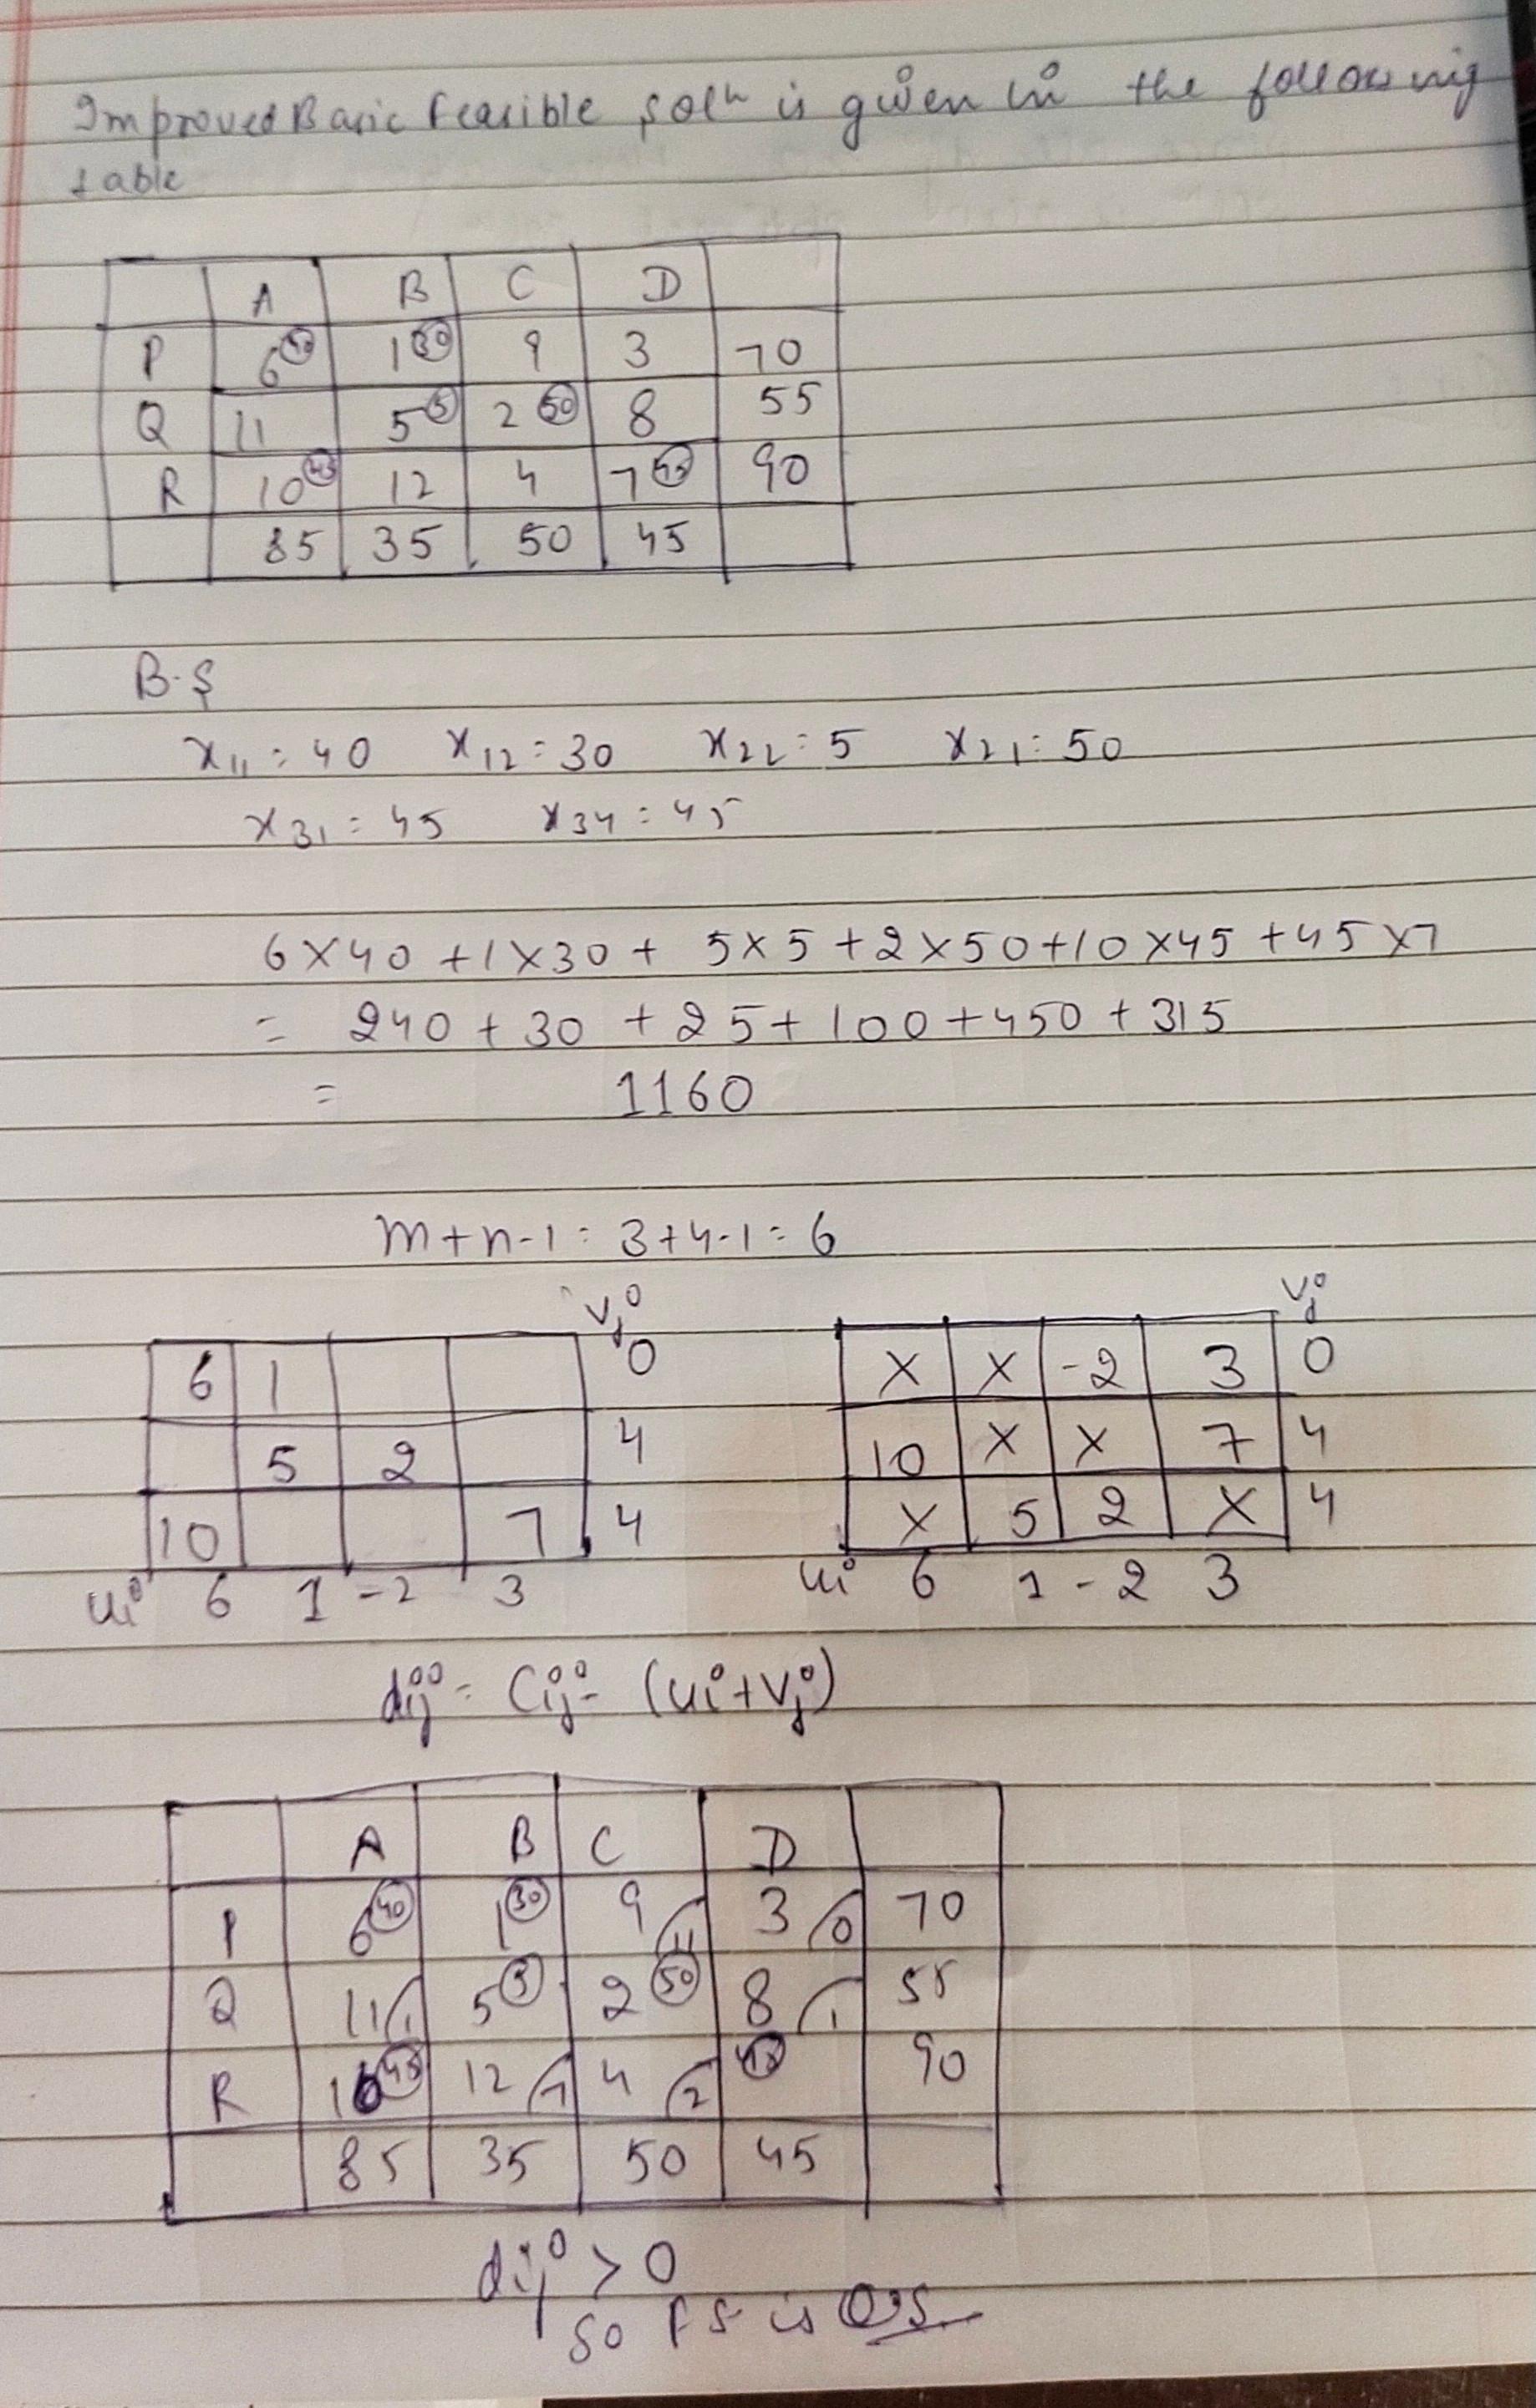 Improved Basic Feasible Solⁿ is given in the following
table
A B C D
P 6 (40) 1 (30) 9 3 70
Q 11 5 (5) 2 (50) 8 55
R 10 (45) 12 4 7 (45) 90
85 35 50 45
B.S
x₁₁ = 40 x₁₂ = 30 x₂₂ = 5 x₂₁ = 50
x₃₁ = 45 x₃₄ = 45
6×40 +1×30 + 5×5 +2×50+10×45 +45×7
= 240 + 30 + 25 + 100 + 450 + 315
= 1160
m+n-1 = 3+4-1 = 6
vj
6 1 0
5 2 4
10 7 4
ui 6 1 -2 3
vj
× × -2 3 0
10 × × 7 4
× 5 2 × 4
ui 6 1 -2 3
dij = Cij - (ui+vj)
A B C D
P 6 (40) 1 (30) 9 11 3 0 70
Q 11 1 5 (5) 2 (50) 8 1 55
R 10 (45) 12 7 4 2 (45) 90
85 35 50 45
dij > 0
So FS is O.S